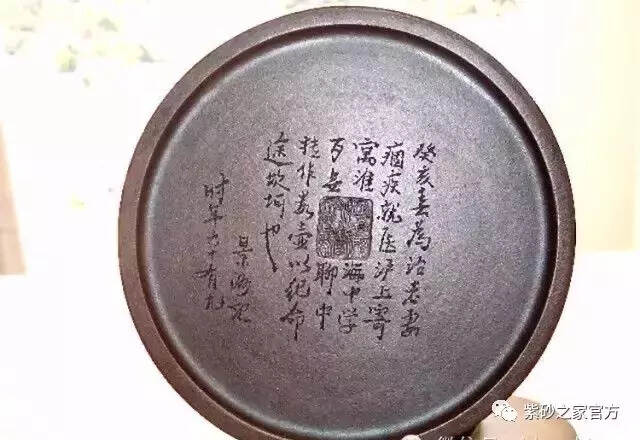 癸亥春為治老妻
痼疾就医沪上寄
寓淮海中学
百无聊中
抟作数壶以纪命
途坎坷也
景洲记
时年六十有九
紫砂之家官方